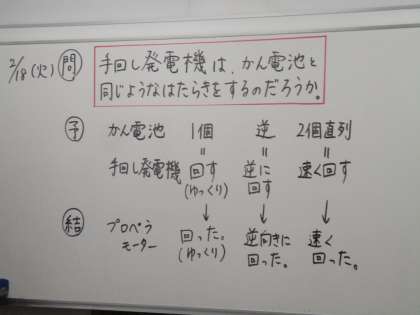 2/18(火) 問 手回し発電機は、かん電池と
同じようなはたらきをするのだろうか。
予 かん電池 1個 逆 2個直列
〃 〃 〃
手回し発電機 回す 逆に 速く回す
(ゆっくり) 回す
↓ ↓ ↓
結 プロペラ 回った。 逆向きに 速く
モーター (ゆっくり) 回った。 回った。